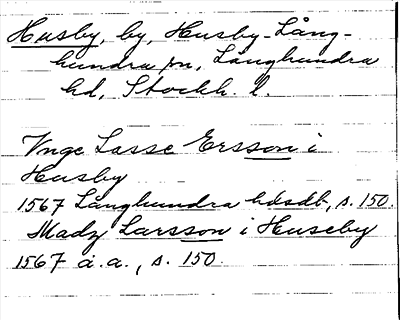 Husby, by, Husby-Lång-
hundra sn, Långhundra
hd, Stockh. l.
Vnge Lasse Ersson i
Husby
1567 Långhundra hdsdb, s. 150.
Madz Larsson i Huseby
1567 a.a., s. 150.